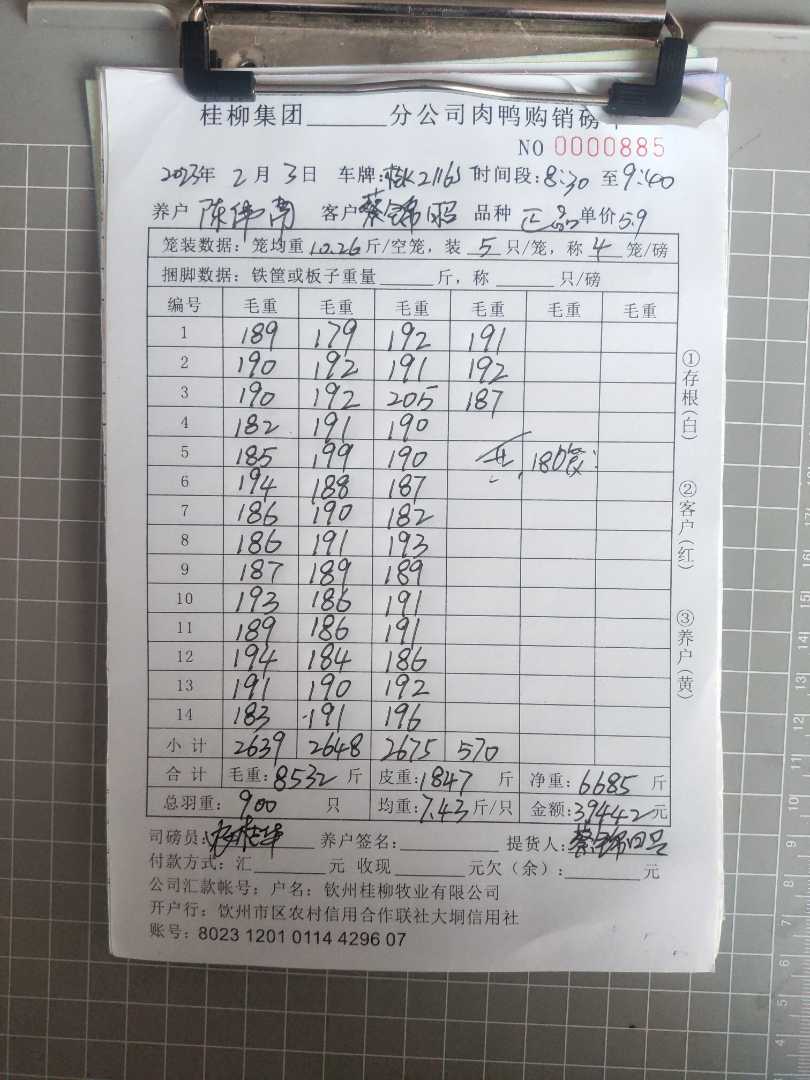 桂柳集团______分公司肉鸭购销磅单
NO 0000885
2023年 2月 3日 车牌:桂K2116J 时间段:8:30 至9:40
养户 陈伟 客户 蔡锦昭 品种 正品 单价5.9
笼装数据:笼均重10.26斤/空笼,装 5 只/笼,称 4 笼/磅
捆脚数据:铁筐或板子重量______斤,称______只/磅
编号 毛重 毛重 毛重 毛重 毛重 毛重
1 189 179 192 191
2 190 192 191 192
3 190 192 205 187
4 182 191 190
5 185 199 190 共 180笼
6 194 188 187
7 186 190 182
8 186 191 193
9 187 189 189
10 193 186 191
11 189 186 191
12 194 184 186
13 191 190 192
14 183 191 196
小计 2639 2648 2675 570
合计 毛重:8532斤 皮重:1847斤 净重:6685斤
总羽重:900只 均重:7.43斤/只 金额:39442元
司磅员: 养户签名:______ 提货人:蔡锦昭
付款方式:汇______元 收现______元欠(余):______元
公司汇款帐号:户名:钦州桂柳牧业有限公司
开户行:饮州市区农村信用合作联社大垌信用社
账号:8023 1201 0114 4296 07
①存根(白)
②客户(红)
③养户(黄)